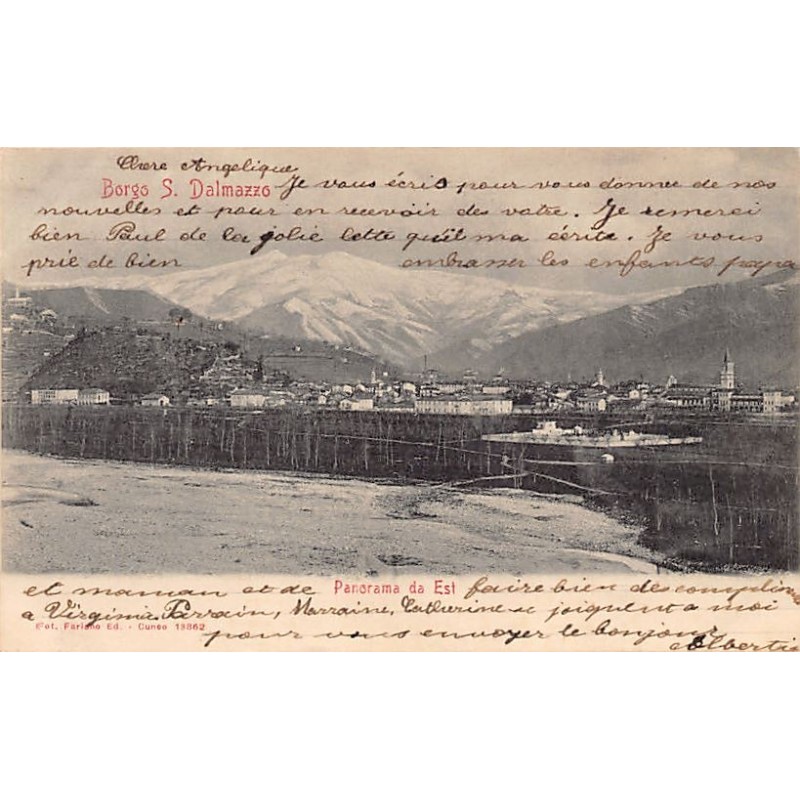 Chere Angelique
Borgo S. Dalmazzo Je vous écris pour vous donner de nos
nouvelles et pour en recevoir des votre. Je remerci
bien Paul de la jolie lette qu'il ma écrite. Je vous
prie de bien embrasser les enfants papa
et maman et de Panorama da Est faire bien des complim
a Virginia Parrain, Marraine, Catherine se joignent a moi
Fot. Fariano Ed. - Cuneo 13862
pour vous envoyer le bonjour